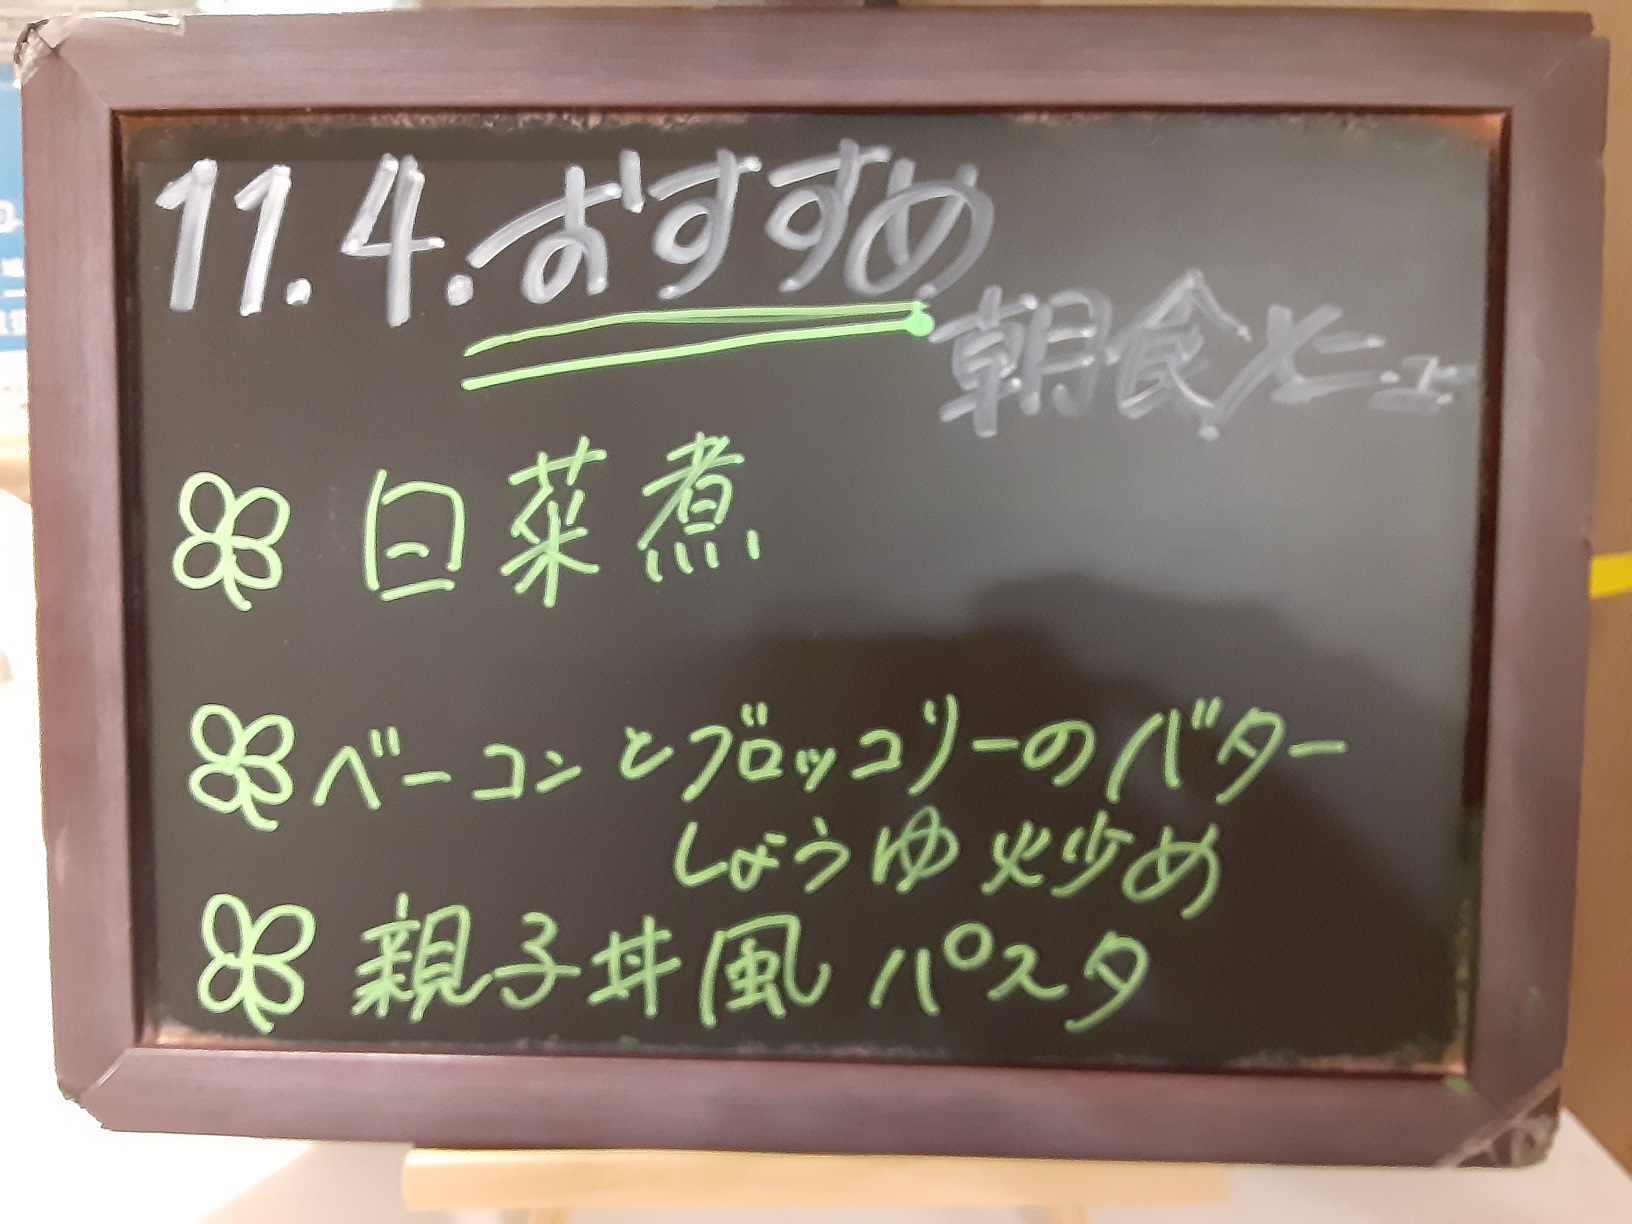 11.4.おすすめ
朝食メニュー
白菜煮
ベーコンとブロッコリーのバター
しょうゆ炒め
親子丼風パスタ